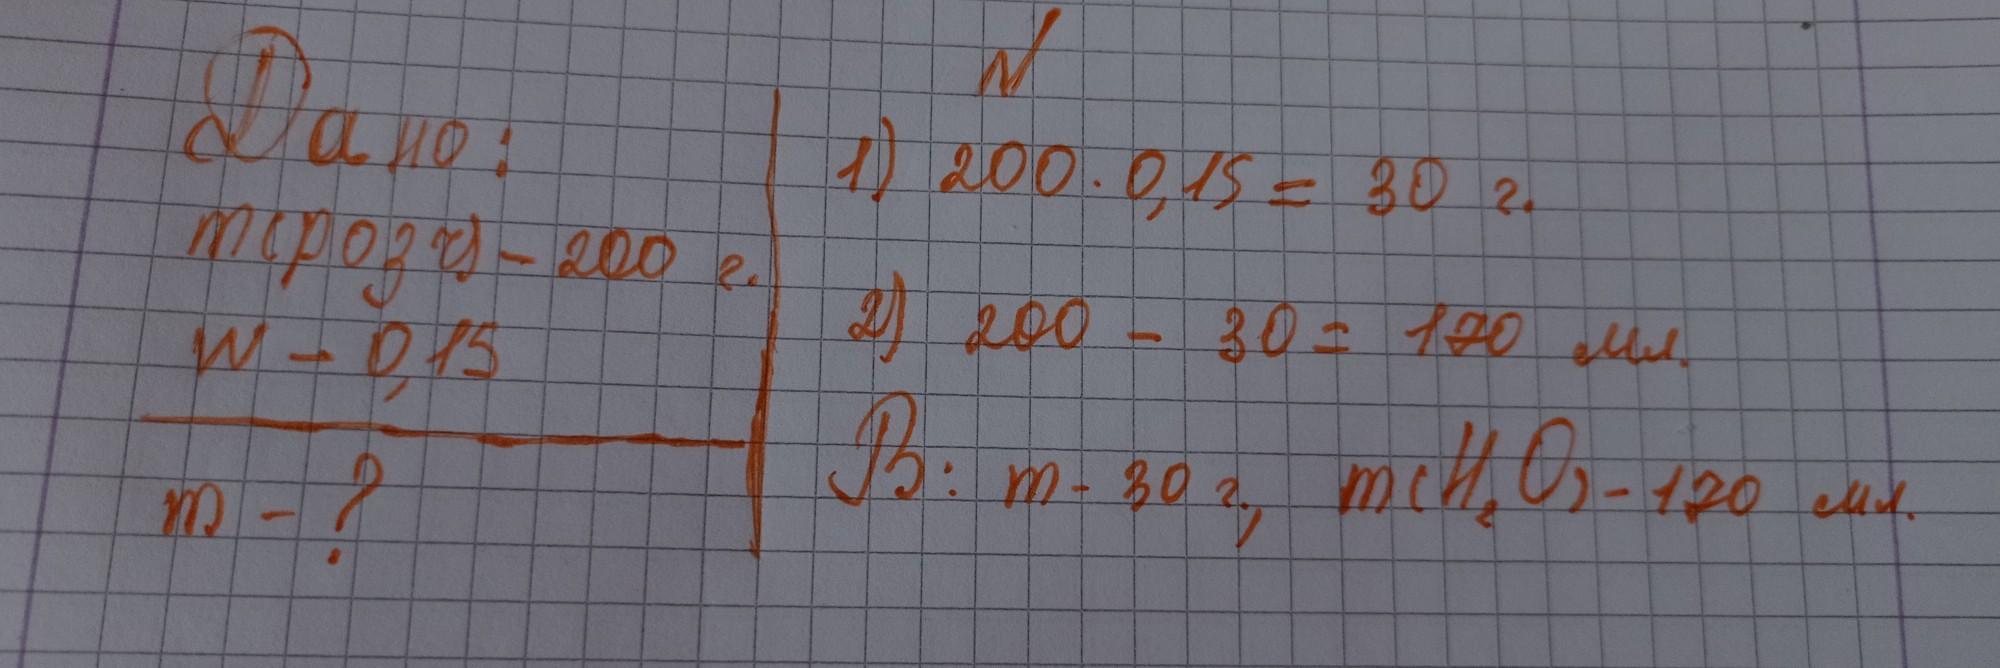 Дано:
m(розч) - 200 г.
W - 0,15
m - ?
N
1) 200 · 0,15 = 30 г.
2) 200 - 30 = 170 мл.
В: m - 30 г., m(H₂O) - 170 мл.